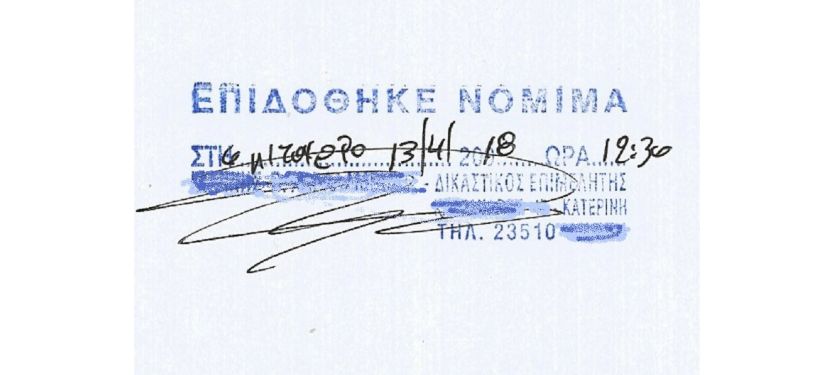 ΕΠΙΔΟΘΗΚΕ ΝΟΜΙΜΑ
ΣΤΙΣ 13/4/ 2018 ΩΡΑ 12:30
ΔΙΚΑΣΤΙΚΟΣ ΕΠΙΜΕΛΗΤΗΣ
ΚΑΤΕΡΙΝΗ
ΤΗΛ. 23510